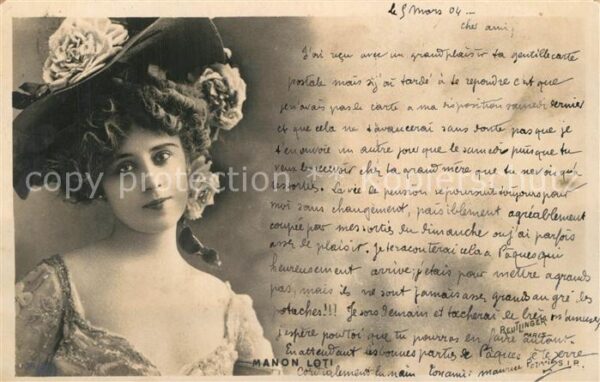 le 5 Mars 04 —
cher ami,
J'ai reçu avec un grand plaisir ta gentille carte
postale mais si j'ai tardé à te repondre c'est que
je n'avais pas le carte a ma disposition samedi dernier
et que cela ne t'avancerai sans doute pas que je
t'en envoie un autre jour que le samedi puisque tu
vens les recevoir chez ta grand mère que tu ne vois qu'a
sorties. La vie de pension se poursuit toujours pour
moi sans changement, paisiblement agréablement
coupée par mes sorties du dimanche ou j'ai parfois
assez de plaisir. Je te raconterai cela a Pâques qui
heureusement arrive; j'etais pour mettre a grands
pas, mais ils ne sont jamais assez grands au gré des
potaches!!! Je sors demain et tacherai de bien m'amuser
j'espère pour toi que tu pourras en faire autant.
En attendant les bonnes parties de Pâques je te serre
cordialement la main Ton ami: maurice
REUTLINGER
PARIS
MANON LOTI
S.I.P.
copyright protection